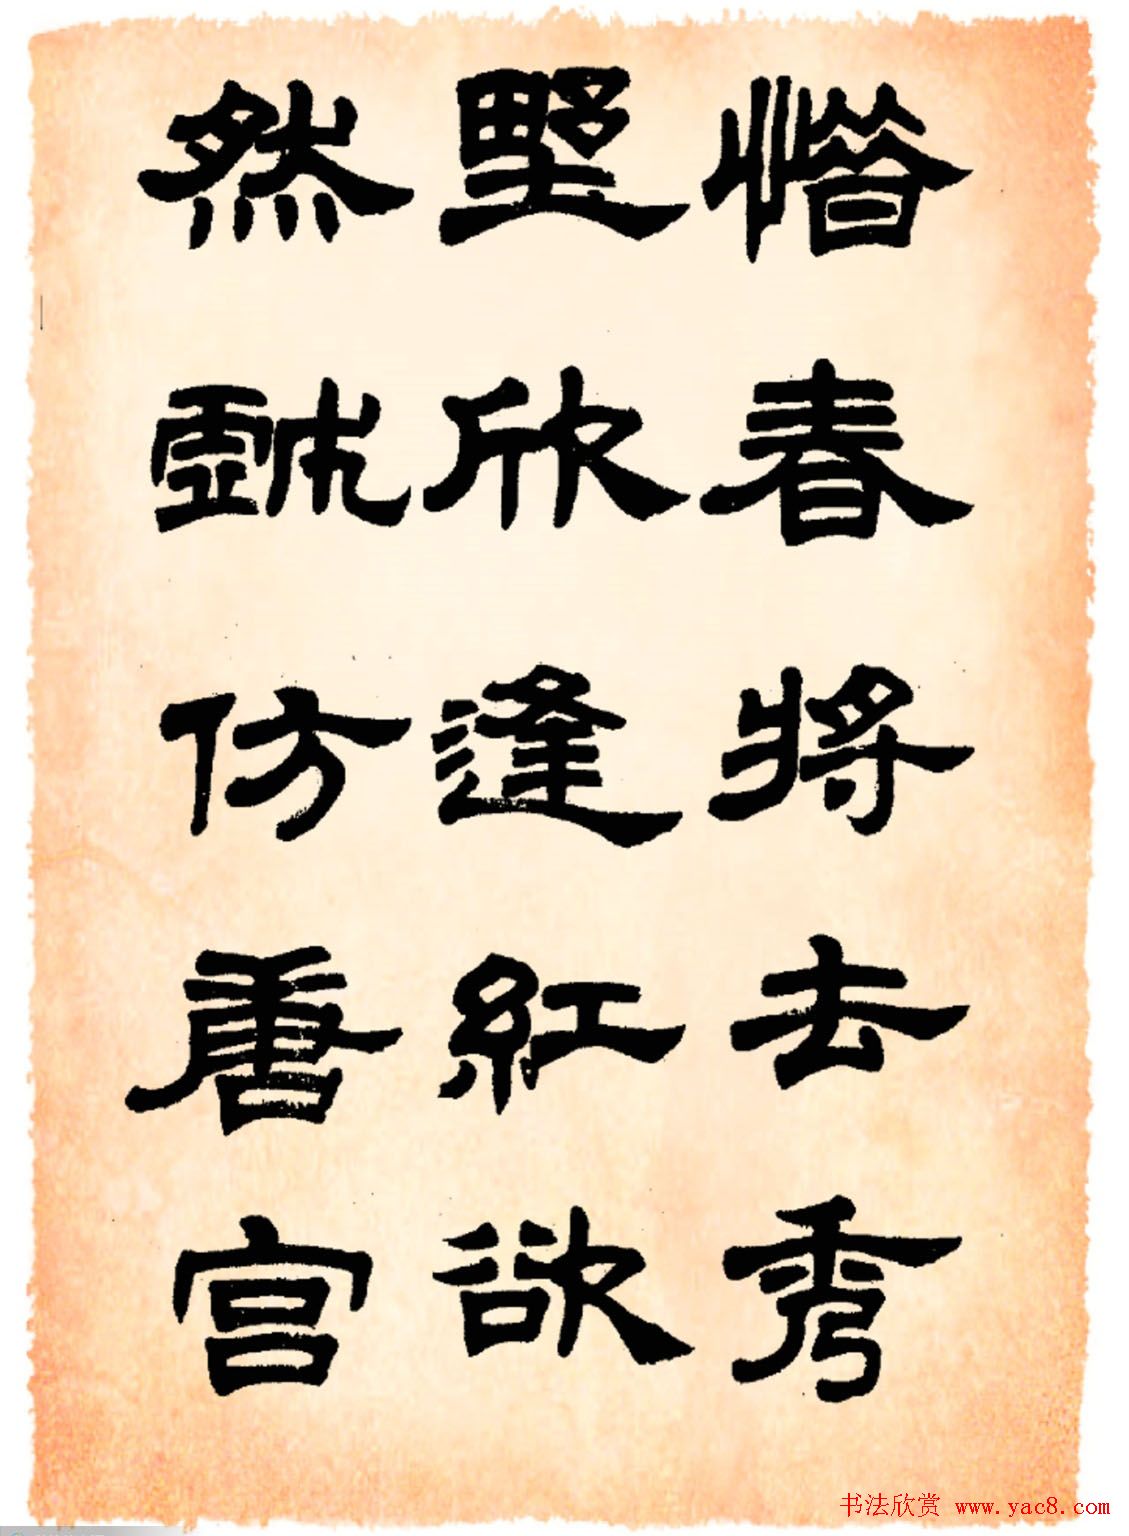 惜春将去秀
野欣逢紅欲
然戲仿唐宫
书法欣赏 www.yac8.com